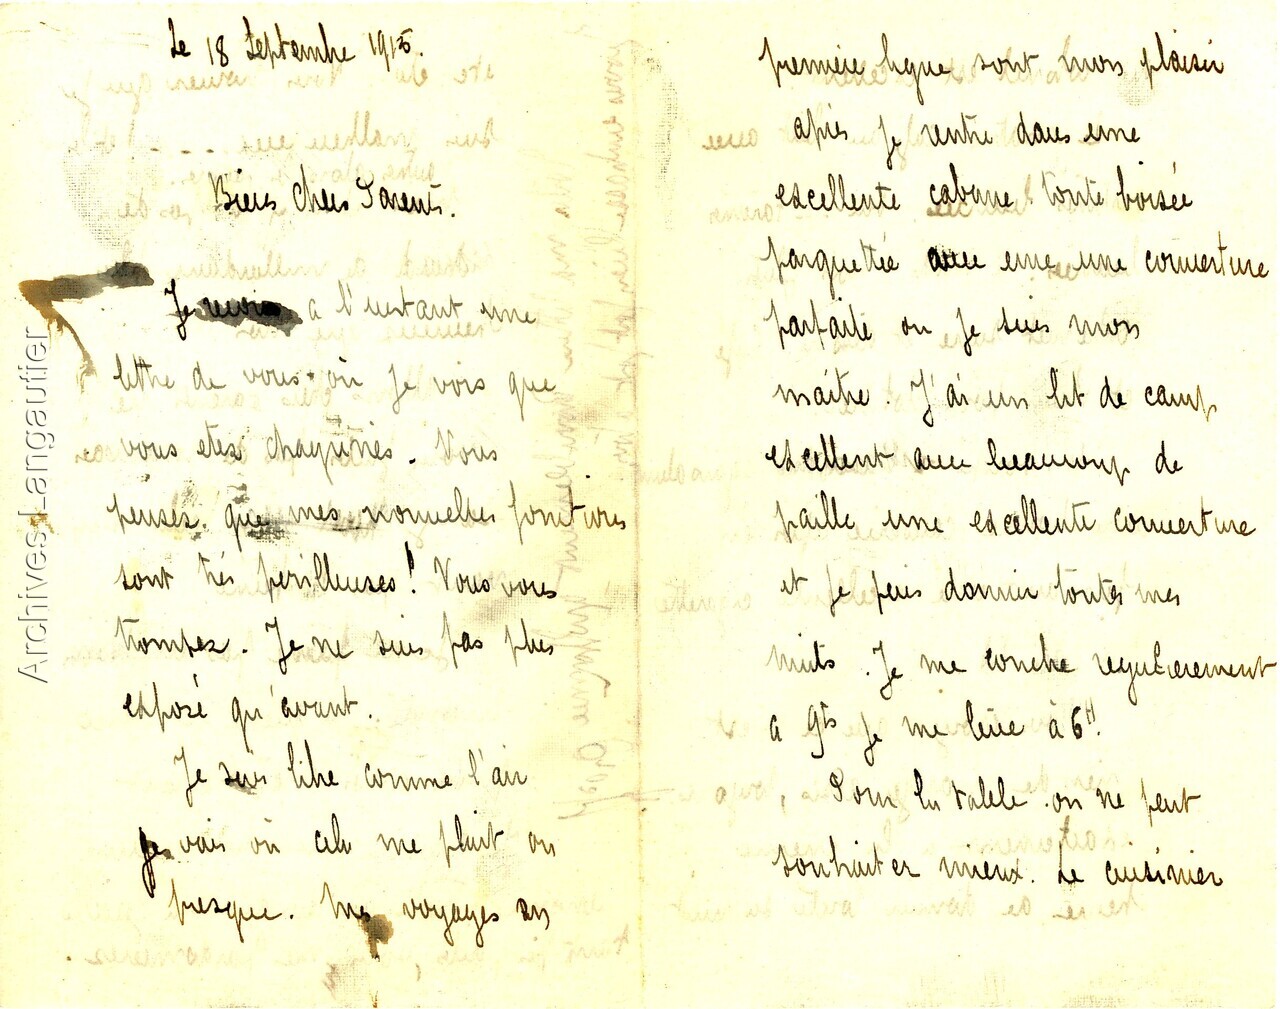 Le 18 Septembre 1915.
Biens chers Parents.
Je reçois a l'instant une
lettre de vous où je vois que
vous etes chagrinés. Vous
pensez que mes nouvelles fonctions
sont trés perilleuses! Vous vous
trompez. Je ne suis pas plus
exposé qu'avant.
Je suis libre comme l'air
je vais où cela me plait ou
presque. Mes voyages en
premiere ligne sont mon plaisir
aprés je rentre dans une
excellente cabane toute boisée
parquettée avec une une couverture
parfaite ou je suis mon
maitre. J'ai un lit de camp
excellent avec beaucoup de
paille une excellente couverture
et je puis dormir toutes mes
nuits. Je me couche regulierement
a 9h je me lève à 6H.
Pour la table on ne peut
souhaiter mieux. Le cuisinier
Archives Langautier